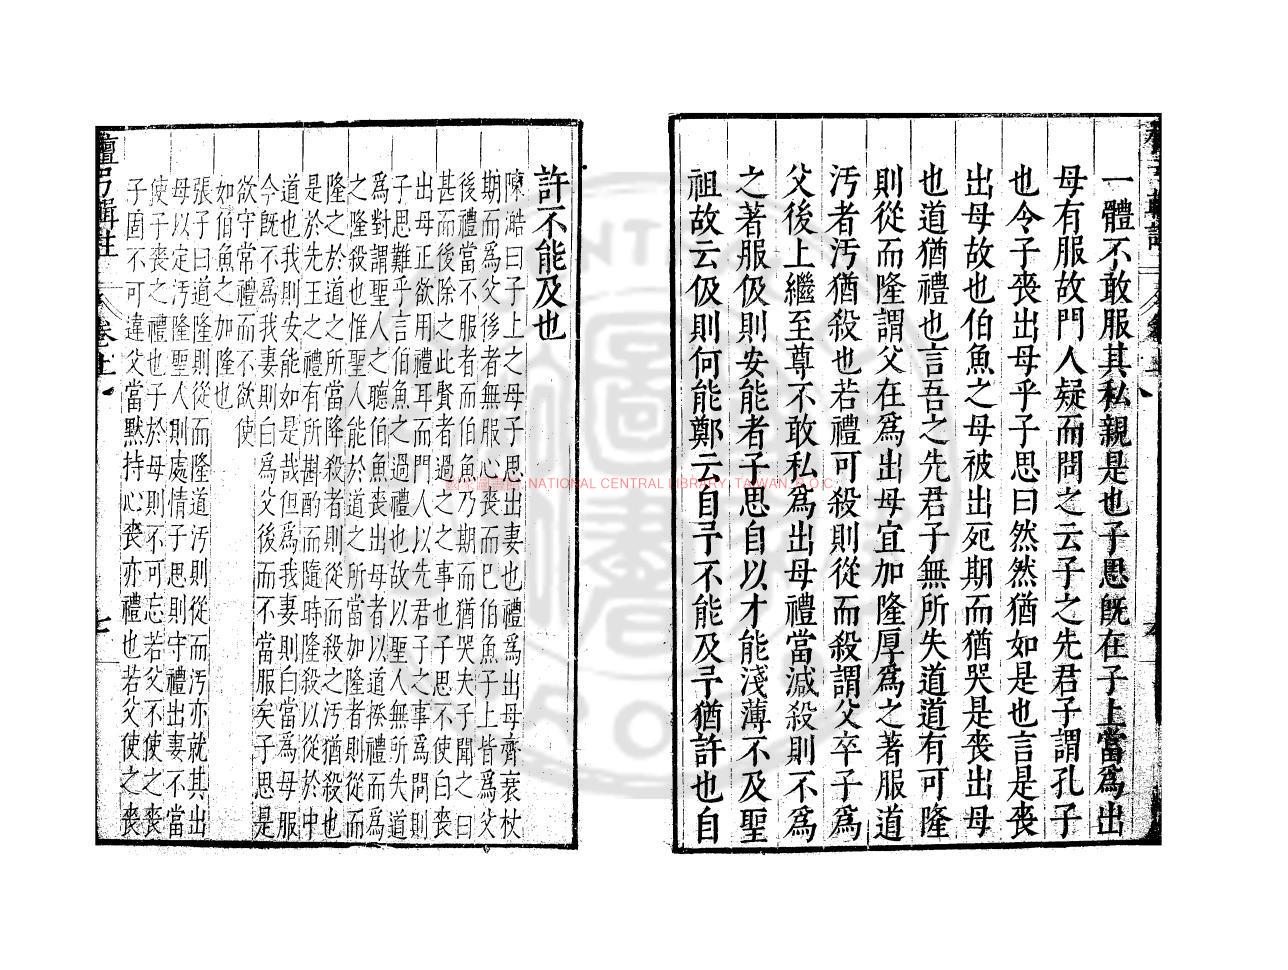 一體不敢服其私親是也子思旣在子上當爲出
母有服故門人疑而問之云子之先君子謂孔子
也令子喪出母乎子思曰然然猶如是也言是喪
出母故也伯魚之母被出死期而猶哭是喪出母
也道猶禮也言吾之先君子無所失道道有可隆
則從而隆謂父在爲出母宜加隆厚爲之著服道
汚者汚猶殺也若禮可殺則從而殺謂父卒子爲
父後上繼至尊不敢私爲出母禮當減殺則不爲
之著服伋則安能者子思自以才能淺薄不及聖
祖故云伋則何能鄭云自予不能及予猶許也自
許不能及也
陳澔曰子上之母子思出妻也禮爲出母齊衰杖
期而爲父後者無服心喪而已伯魚子上皆爲父
後禮當不服者而伯魚乃期而猶哭夫子聞之曰
甚而後除之此賢者過之之事也子思不使白喪
出母正欲用禮耳而門人以先君子之事爲問則
子思難乎言伯魚之過禮也故以聖人無所失道
爲對謂聖人之聽伯魚喪出母者以道揆禮而爲
之隆殺也惟聖人能於道之所當加隆者則從而
隆之於道之所當降殺者則從而殺之汚猶殺也
是於先王之禮有所斟酌而隨時隆殺以從於中
道也我則安能如是哉但爲我妻則白當爲母服
今旣不爲我妻則白爲父後而不當服矣子思是
欲守常禮而不欲使
如伯魚之加隆也
張子曰道隆則從而隆道汚則從而汚亦就其出
母以定汚隆聖人則處情子思則守禮出妻不當
使子喪之禮也子於母則不可忘若父不使之喪
子固不可違父當默持心喪亦禮也若父使之喪
檀弓輯註
卷上
七
NATIONAL CENTRAL LIBRARY, TAIWAN, R.O.C